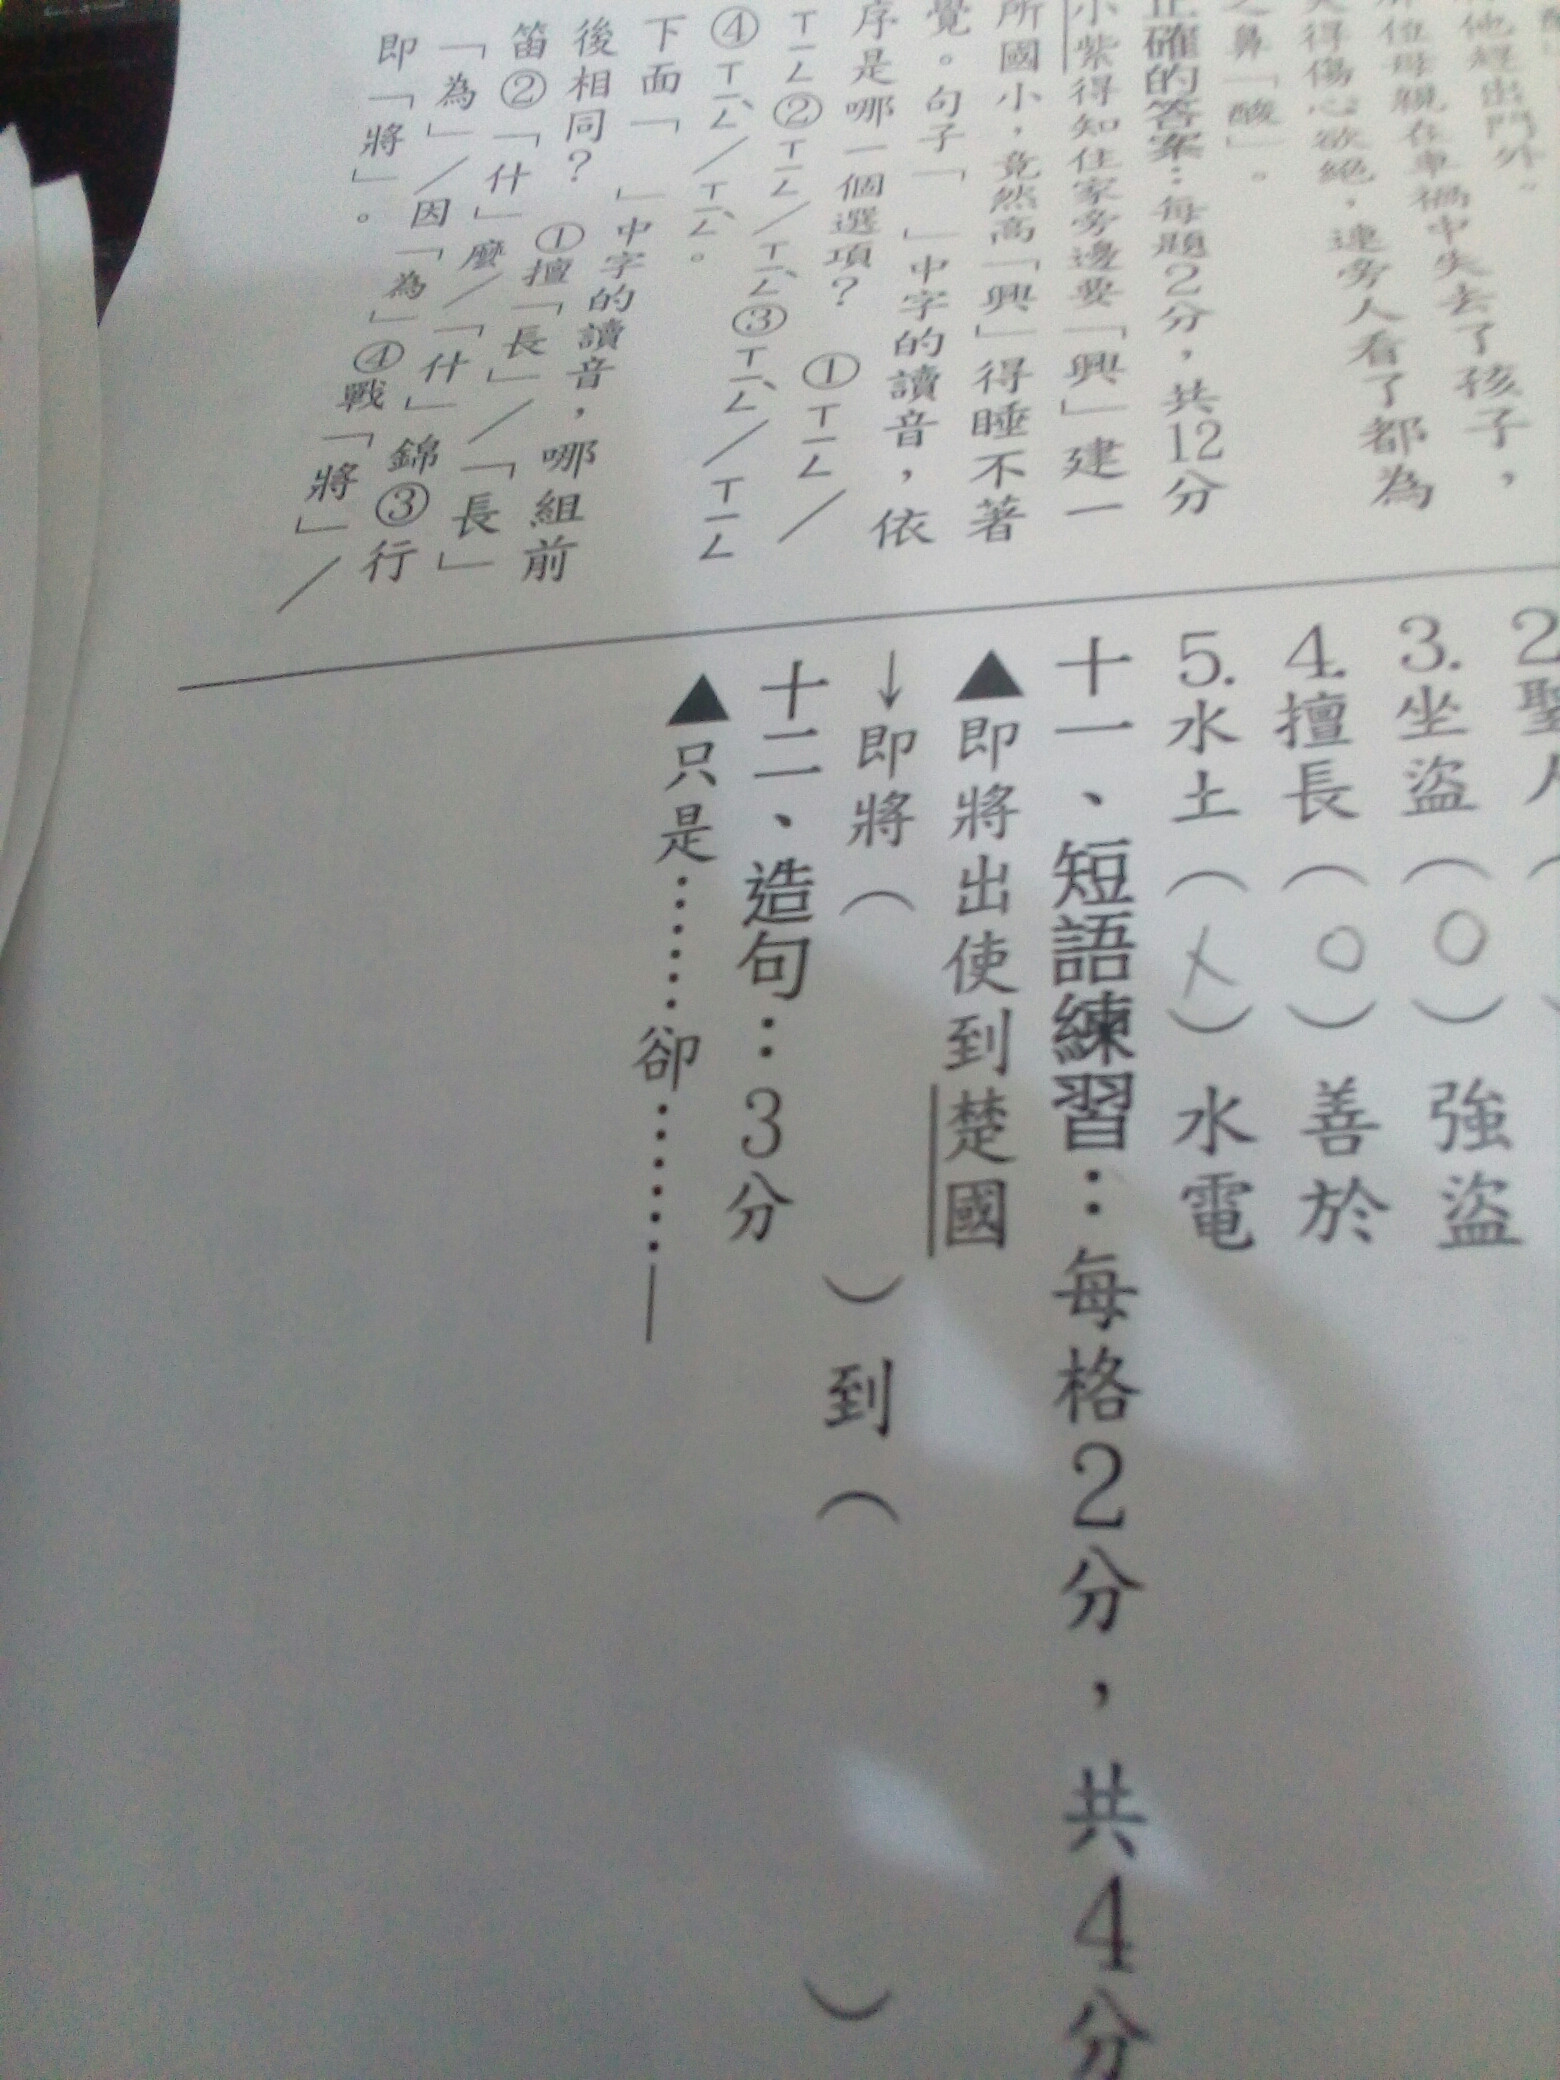 他經出門外。
位母親在車禍中失去了孩子，
得傷心欲絕，連旁人看了都為
之鼻「酸」。
正確的答案：每題2分，共12分
小紫得知住家旁邊要「興」建一
所國小，竟然高「興」得睡不著
覺。句子「　」中字的讀音，依
序是哪一個選項？　①ㄒㄧㄥ／
ㄒㄧㄥ②ㄒㄧㄥ／ㄒㄧㄥˋ③ㄒㄧㄥˋ／ㄒㄧㄥ
④ㄒㄧㄥˋ／ㄒㄧㄥˋ。
下面「　」中字的讀音，哪組前
後相同？　①擅「長」／「長」
笛②「什」麼／「什」錦③行
「為」／因「為」④戰「將」／
即「將」。
2.聖人（
3.坐盜（○）強盜
4.擅長（○）善於
5.水土（╳）水電
十一、短語練習：每格2分，共4分
▲即將出使到楚國
↓即將（　　）到（　　）
十二、造句：3分
▲只是……卻……—